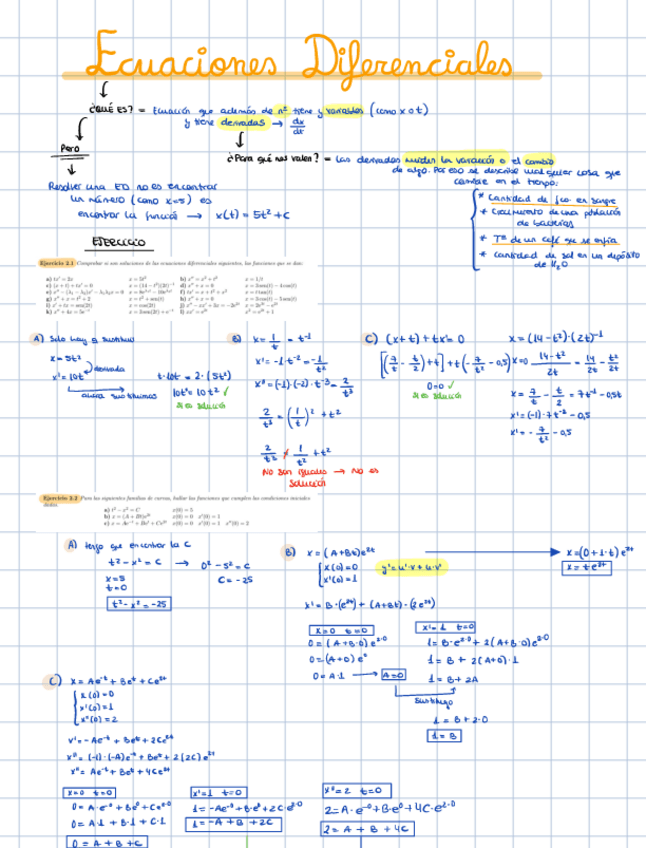 Ecuaciones Diferenciales
¿QUÉ ES? = Ecuación que además de nº tiene y variables (como x o t)
y tiene derivadas → dx/dt
Pero
¿Para qué nos valen? = Las derivadas miden la variación o el cambio
de algo. Por eso se describe cualquier cosa que
cambie en el tiempo:
Resolver una ED no es encontrar
un número (como x=5) es
encontrar la función → x(t) = 5t² + C
* Cantidad de fco. en sangre
* Crecimiento de una población
de bacterias
* Tª de un café que se enfría
* Cantidad de sal en un depósito
de H₂O
EJERCICIO
Ejercicio 2.1 Comprobar si son soluciones de las ecuaciones diferenciales siguientes, las funciones que se dan:
a) tx' = 2x x = 5t² b) x'' = x² + t² x = 1/t
A) Solo hay q sustituir
x = 5t²
derivada
x' = 10t
ahora sustituimos
t·10t = 2·(5t²)
10t² = 10t² ✓
Sí es solución
B) x = 1/t = t⁻¹
x' = -1·t⁻² = -1/t²
x'' = (-1)·(-2)·t⁻³ = 2/t³
2/t³ = (1/t)² + t²
2/t³ ≠ 1/t² + t²
No son iguales → No es
solución
C) (x+t) + tx' = 0
[(7/t - t/2) + t] + t(-7/t² - 0,5) = 0
0=0 ✓
Sí es solución
x = (14-t²)·(2t)⁻¹
x = 14-t²/2t = 14/2t - t²/2t
x = 7/t - t/2 = 7t⁻¹ - 0,5t
x' = (-1)·7t⁻² - 0,5
x' = -7/t² - 0,5
Ejercicio 2.2 Para las siguientes familias de curvas, hallar las funciones que cumplen las condiciones iniciales
dadas:
a) t² - x² = C x(0) = 5
b) x = (A + Bt)e²ᵗ x(0) = 0 x'(0) = 1
c) x = Ae⁻ᵗ + Beᵗ + Ce²ᵗ x(0) = 0 x'(0) = 1 x''(0) = 2
A) tengo que encontrar la C
t² - x² = C → 0² - 5² = C
x = 5
t = 0
C = -25
t² - x² = -25
B) x = (A+Bt)e²ᵗ
x(0) = 0
x'(0) = 1
y' = u'·v + u·v'
x = (0+1·t)e²ᵗ
x = te²ᵗ
x' = B·(e²ᵗ) + (A+Bt)·(2e²ᵗ)
x=0 t=0
0 = (A+B·0)e²·⁰
0 = (A+0)e⁰
0 = A·1 → A=0
x'=1 t=0
1 = B·e²·⁰ + 2(A+B·0)e²·⁰
1 = B + 2(A+0)·1
1 = B + 2A
Sustituyo
1 = B + 2·0
1 = B
C) x = Ae⁻ᵗ + Beᵗ + Ce²ᵗ
x(0) = 0
x'(0) = 1
x''(0) = 2
x' = -Ae⁻ᵗ + Beᵗ + 2Ce²ᵗ
x'' = (-1)·(-A)e⁻ᵗ + Beᵗ + 2(2C)e²ᵗ
x'' = Ae⁻ᵗ + Beᵗ + 4Ce²ᵗ
x=0 t=0
0 = A·e⁻⁰ + Be⁰ + Ce²·⁰
0 = A·1 + B·1 + C·1
0 = A + B + C
x'=1 t=0
1 = -Ae⁻⁰ + B·e⁰ + 2C·e²·⁰
1 = -A + B + 2C
x''=2 t=0
2 = A·e⁻⁰ + Be⁰ + 4C·e²·⁰
2 = A + B + 4C